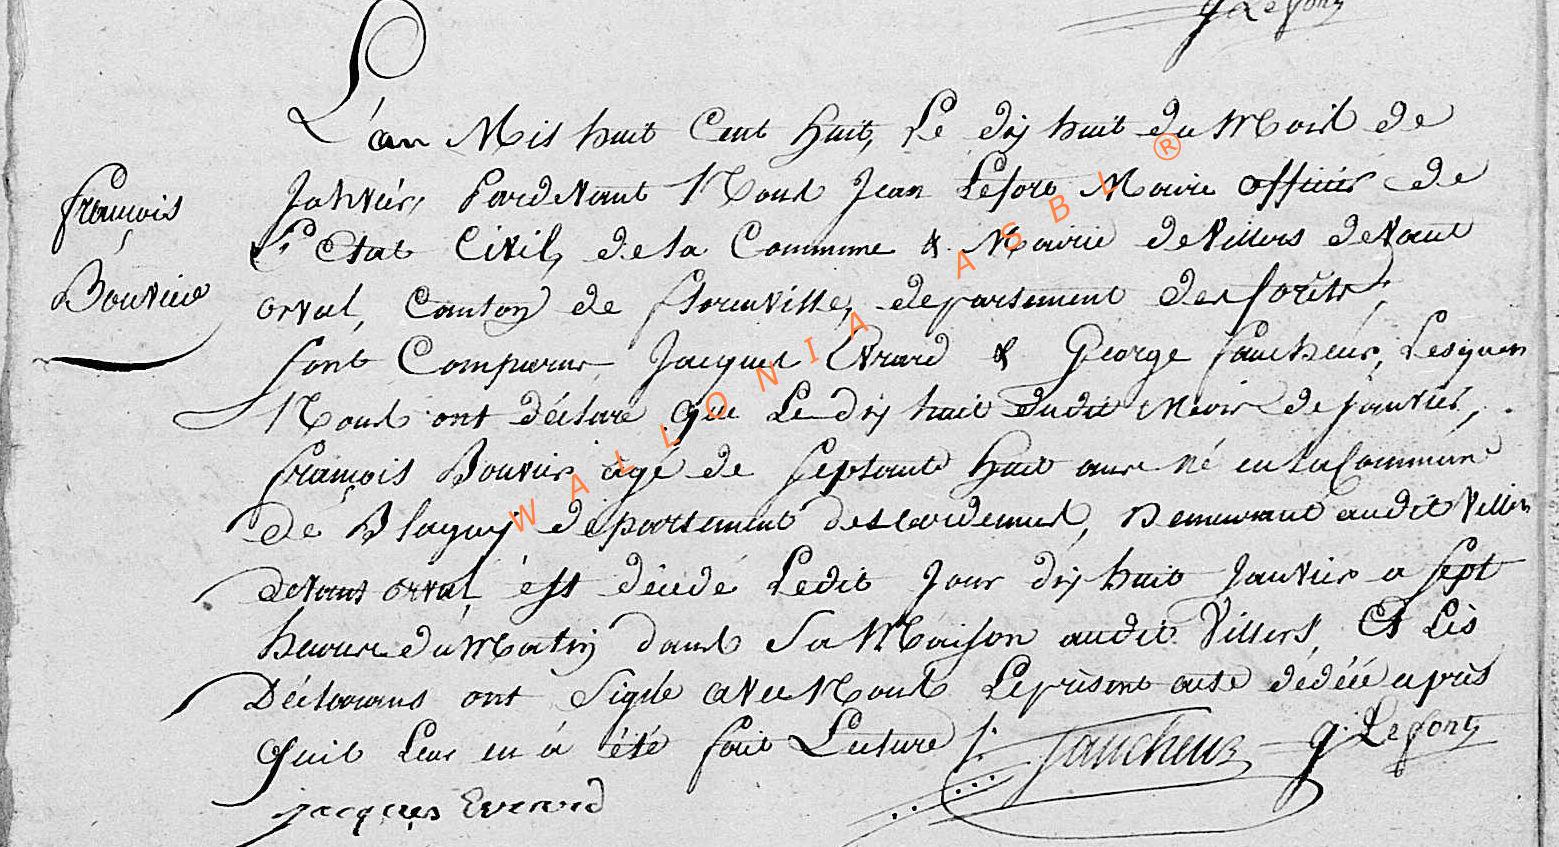 g Lefont
L'an Mil huit Cent huit, Le dix huit du Mois de
Janvier, Pardevant Nous Jean Lefort Maire officier de
L'Etat Civil, de la Commune & Mairie de Villers devant
orval, Canton de florenville, departement des forêts,
sont Comparus Jacques Evrard & George faucheur, Lesquels
Nous ont déclaré que Le dix huit dudit Mois de janvier,
françois Bouvier agé de septante huit ans né en la Commune
de Blagny departement des ardennes, Demeurant audit Villers
devant orval, est décédé Ledit Jour dix huit Janvier a sept
heures du Matin dans Sa Maison audit Villers, Et Les
Déclarans ont Signé avec Nous Le présent acte de décé après
quil Leur en á été fait Lecture /.
faucheur
g Lefont
jacques Evrard
françois
Bouvier
WALLONIA ASBL ®